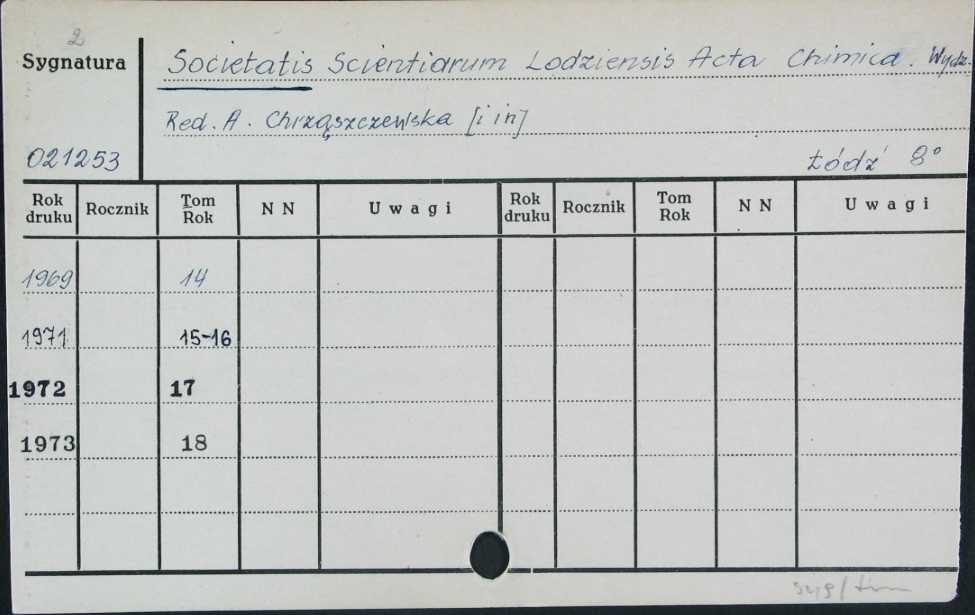 2
Sygnatura
Societatis Scientiarum Lodziensis Acta Chimica. Wydz.
Red. A. Chrząszczewska [i in]
021253
Łódź 8°
Rok druku Rocznik Tom Rok N N Uwagi Rok druku Rocznik Tom Rok N N Uwagi
1969 14
1971 15-16
1972 17
1973 18